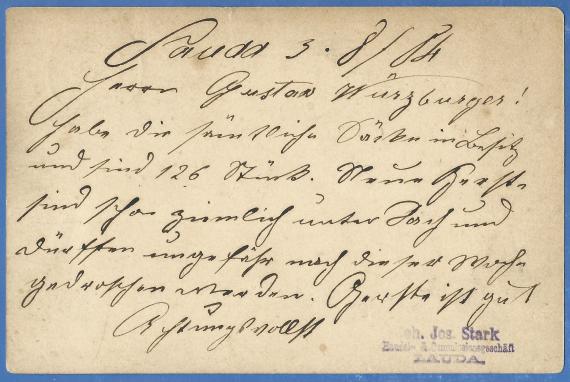 Lauda 3. 8/84
Herrn Gustav Würzburger!
habe die sämtliche Säcke in Besitz
und sind 126 Stück. Neue Gerste
sind schon ziemlich unter Dach und
dürften ungefähr nach dieser Woche
gedroschen werden. Gerste ist gut
Achtungsvollst
Joh. Jos. Stark
Handels- & Commissionsgeschäft
LAUDA.